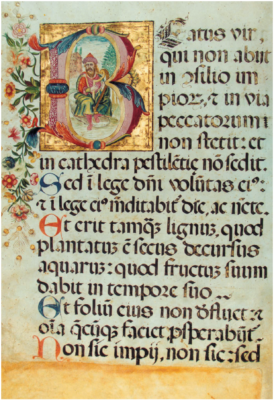 Beatus vir,
qui non abiit
in ɔsilio im
pioꝝ, ⁊ in via
peccatorum i
non stetit: et
in cathedra pestilētie nō sedit.
Sed ī lege dn̄i volūtas eiꝰ:
⁊ ī lege eiꝰ mēditabit̄ die, ac nc̄te.
Et erit tamqꝫ lignuꝫ, quod
plantatuꝫ ē secus decursus
aquaruꝫ: quod fructuꝫ suum
dabit in tempore suo
Et foliuꝫ eius non dfluet: ⁊
oīa q̄cūqꝫ faciet ꝓsperabūt̄.
Non sic impij, non sic: sed